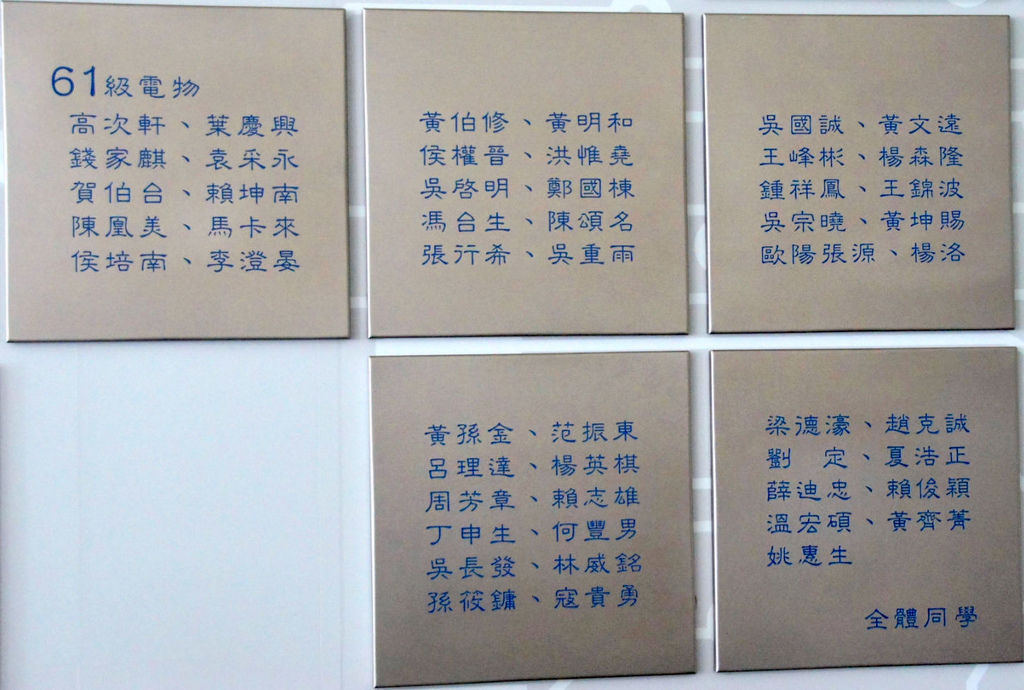 61級電物
高次軒、葉慶興
錢家麒、袁采永
賀伯台、賴坤南
陳凰美、馬卡來
侯培南、李澄晏
黃伯修、黃明和
侯權晉、洪惟堯
吳啓明、鄭國棟
馮台生、陳頌名
張行希、吳重雨
吳國誠、黃文遠
王峰彬、楊森隆
鍾祥鳳、王錦波
吳宗曉、黃坤賜
歐陽張源、楊洛
黃孫金、范振東
呂理達、楊英棋
周芳章、賴志雄
丁申生、何豐男
吳長發、林威銘
孫筱鏞、寇貴勇
梁德濠、趙克誠
劉　定、夏浩正
薛迪忠、賴俊穎
溫宏碩、黃齊菁
姚惠生
全體同學